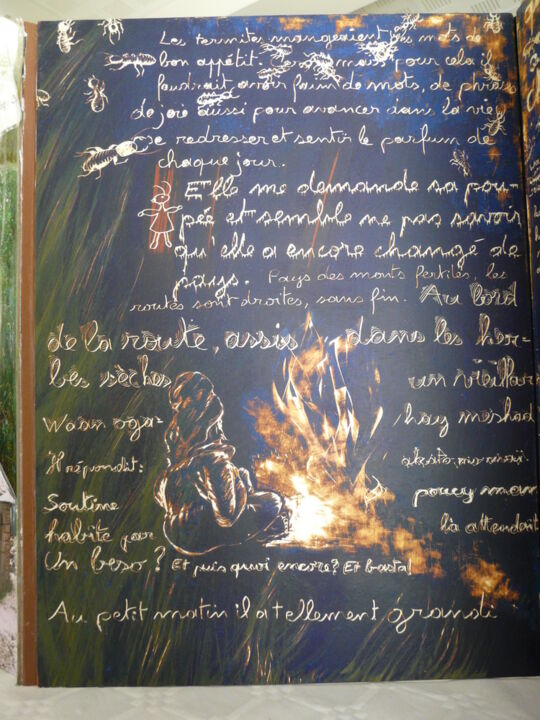 Les termites mangeaient les mots de
bon appétit. mais pour cela il
faudrait avoir faim de mots, de phrases
de joie aussi pour avancer dans la vie,
se redresser et sentir le parfum de
chaque jour.
Elle me demande sa pou-
pée et semble ne pas savoir
qu'elle a encore changé de
pays. Pays des monts fertiles, les
routes sont droites, sans fin. Au bord
de la route, assis dans les her-
bes sèches un vieillar
hay meshad
Il répondit:
Soutine poucy mam
habite par la attendait
Un beso? Et puis quoi encore? Et basta!
Au petit matin il a tellement grandi